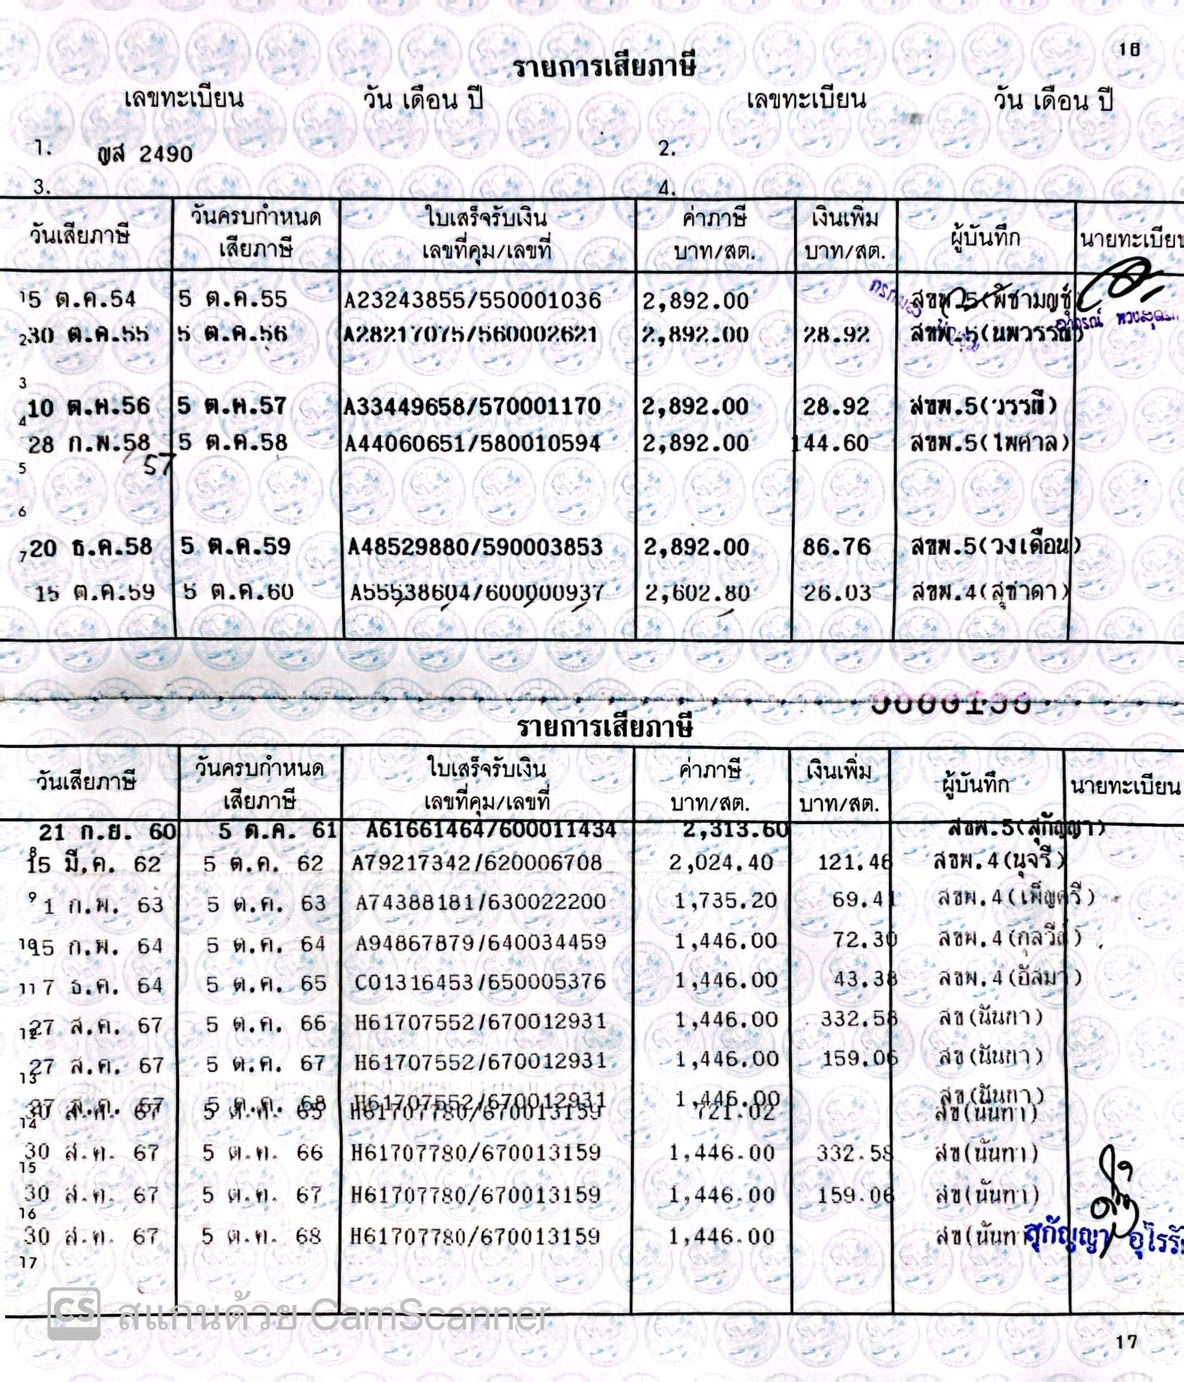 16
รายการเสียภาษี
เลขทะเบียน วัน เดือน ปี เลขทะเบียน วัน เดือน ปี
1. ญส 2490 2.
3. 4.
วันเสียภาษี วันครบกำหนดเสียภาษี ใบเสร็จรับเงิน เลขที่คุม/เลขที่ ค่าภาษี บาท/สต. เงินเพิ่ม บาท/สต. ผู้บันทึก นายทะเบียน
1 5 ต.ค.54 5 ต.ค.55 A23243855/550001036 2,892.00 สขพ.5
2 30 ต.ค.55 5 ต.ค.56 A28217075/560002621 2,892.00 28.92 สขพ.5(นพวรรณ)
3
10 ต.ค.56 5 ต.ค.57 A33449658/570001170 2,892.00 28.92 สขพ.5(วรรณี)
4
28 ก.พ.58 5 ต.ค.58 A44060651/580010594 2,892.00 144.60 สขพ.5(ไพศาล)
5 57
6
7 20 ธ.ค.58 5 ต.ค.59 A48529880/590003853 2,892.00 86.76 สขพ.5(วงเดือน)
15 ต.ค.59 5 ต.ค.60 A55538604/600000937 2,602.80 26.03 สขพ.4(สุชาดา)
รายการเสียภาษี
วันเสียภาษี วันครบกำหนดเสียภาษี ใบเสร็จรับเงิน เลขที่คุม/เลขที่ ค่าภาษี บาท/สต. เงินเพิ่ม บาท/สต. ผู้บันทึก นายทะเบียน
21 ก.ย. 60 5 ต.ค. 61 A61661464/600011434 2,313.60 สขพ.5(สุกัญญา)
8
15 มี.ค. 62 5 ต.ค. 62 A79217342/620006708 2,024.40 121.46 สขพ.4(นุจรี)
9 1 ก.พ. 63 5 ต.ค. 63 A74388181/630022200 1,735.20 69.41 สขพ.4(เพ็ญศรี)
10 15 ก.พ. 64 5 ต.ค. 64 A94867879/640034459 1,446.00 72.30 สขพ.4
11 7 ธ.ค. 64 5 ต.ค. 65 C01316453/650005376 1,446.00 43.38 สขพ.4(อัสมา)
12 27 ส.ค. 67 5 ต.ค. 66 H61707552/670012931 1,446.00 332.58 สข(นันทา)
27 ส.ค. 67 5 ต.ค. 67 H61707552/670012931 1,446.00 159.06 สข(นันทา)
13
27 ส.ค. 67 5 ต.ค. 68 H61707552/670012931 1,446.00 สข(นันทา)
30 ส.ค. 67 5 ต.ค. 65 H61707780/670013159 721.02 สข(นันทา)
14
30 ส.ค. 67 5 ต.ค. 66 H61707780/670013159 1,446.00 332.58 สข(นันทา)
15
30 ส.ค. 67 5 ต.ค. 67 H61707780/670013159 1,446.00 159.06 สข(นันทา)
16
30 ส.ค. 67 5 ต.ค. 68 H61707780/670013159 1,446.00 สข(นันทา) สุกัญญา
17
CS สแกนด้วย CamScanner
17